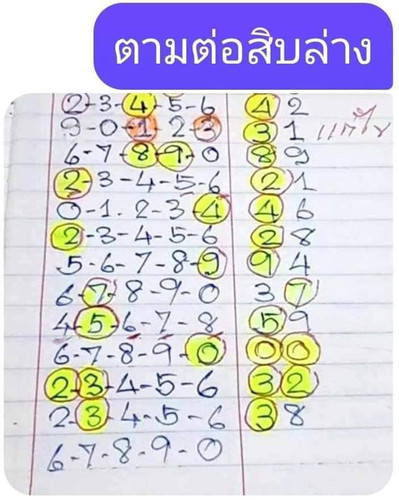 ตามต่อสิบล่าง
2-3-4-5-6 42
9-0-1-2-3 31 แก้ไข
6-7-8-9-0 89
2-3-4-5-6 21
0-1-2-3-4 46
2-3-4-5-6 28
5-6-7-8-9 94
6-7-8-9-0 37
4-5-6-7-8 59
6-7-8-9-0 00
2-3-4-5-6 32
2-3-4-5-6 38
6-7-8-9-0